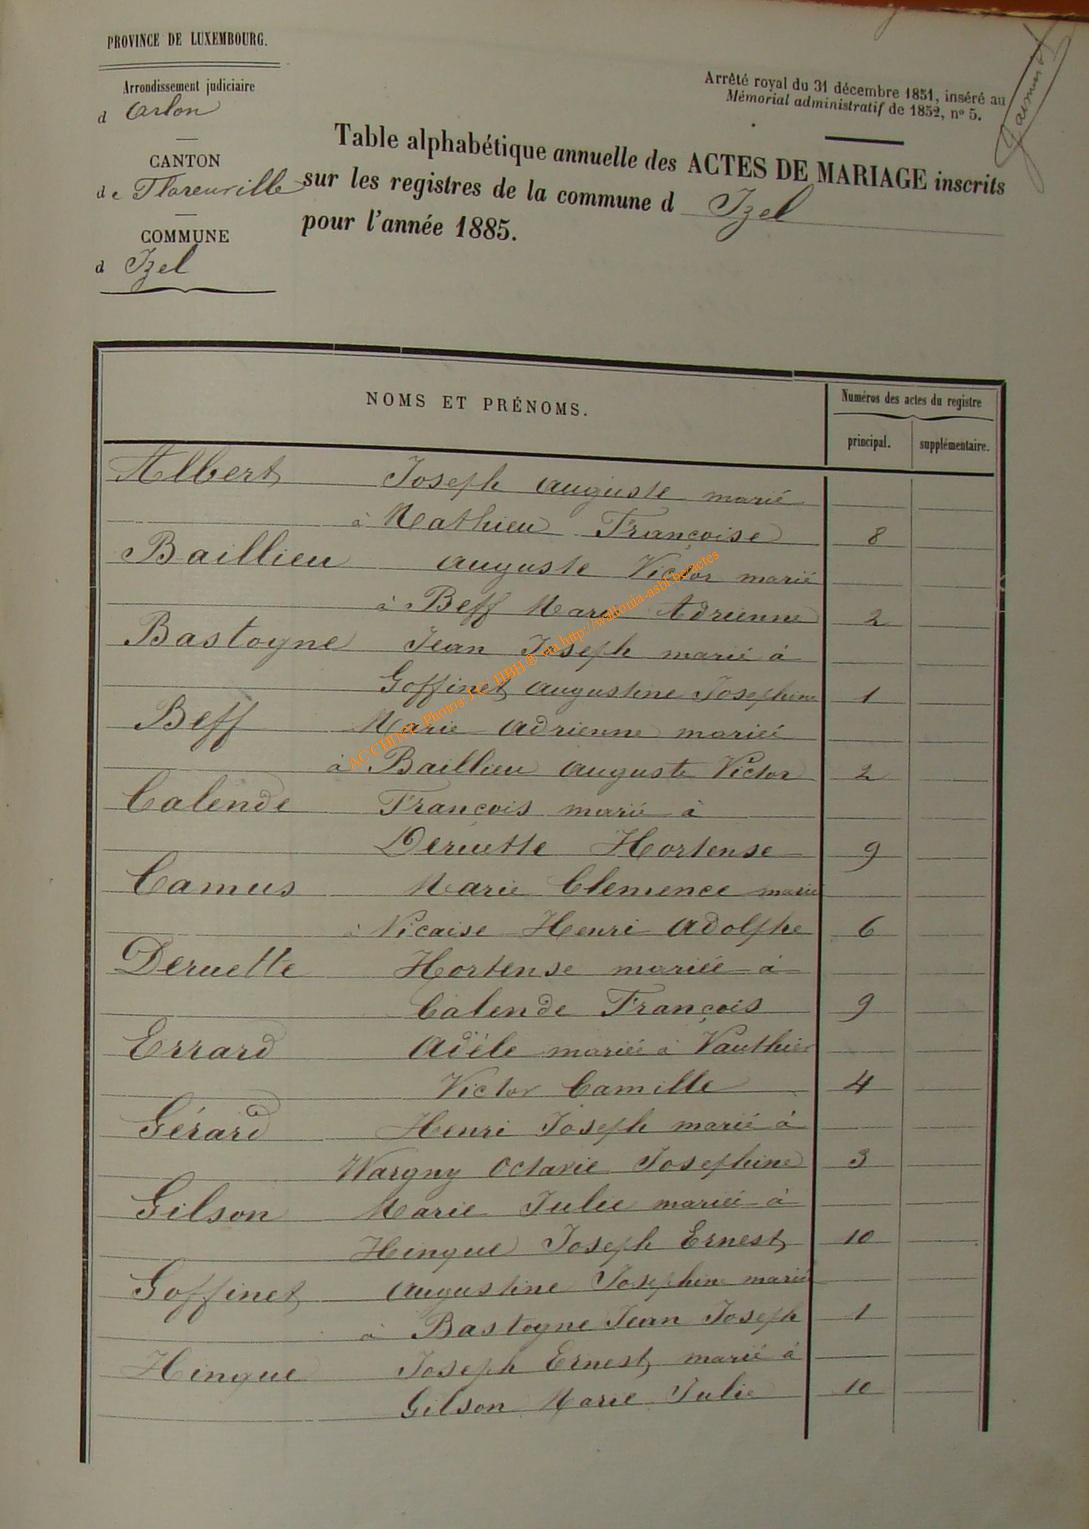 PROVINCE DE LUXEMBOURG.
Arrondissement judiciaire
d Arlon
CANTON
de Florenville
COMMUNE
d Izel
Arrêté royal du 31 décembre 1851, inséré au
Mémorial administratif de 1852, n° 5.
Table alphabétique annuelle des ACTES DE MARIAGE inscrits
sur les registres de la commune d Izel
pour l'année 1885.
NOMS ET PRÉNOMS.
Numéros des actes du registre
principal. supplémentaire.
Albert Joseph Auguste marié
à Mathieu Françoise 8
Baillieu Auguste Victor marié
à Beff Marie Adrienne 2
Bastogne Jean Joseph marié à
Goffinet Augustine Josephine 1
Beff Marie Adrienne mariée
à Baillieu Auguste Victor 2
Calende François marié à
Deruette Hortense 9
Camus Marie Clemence mariée
à Nicaise Henri Adolphe 6
Deruette Hortense mariée à
Calende François 9
Errard Adèle mariée à Vauthier
Victor Camille 4
Gérard Henri Joseph marié à
Wargny Octavie Josephine 3
Gilson Marie Julie mariée à
Hinque Joseph Ernest 10
Goffinet Augustine Josephine mariée
à Bastogne Jean Joseph 1
Hinque Joseph Ernest marié à
Gilson Marie Julie 10